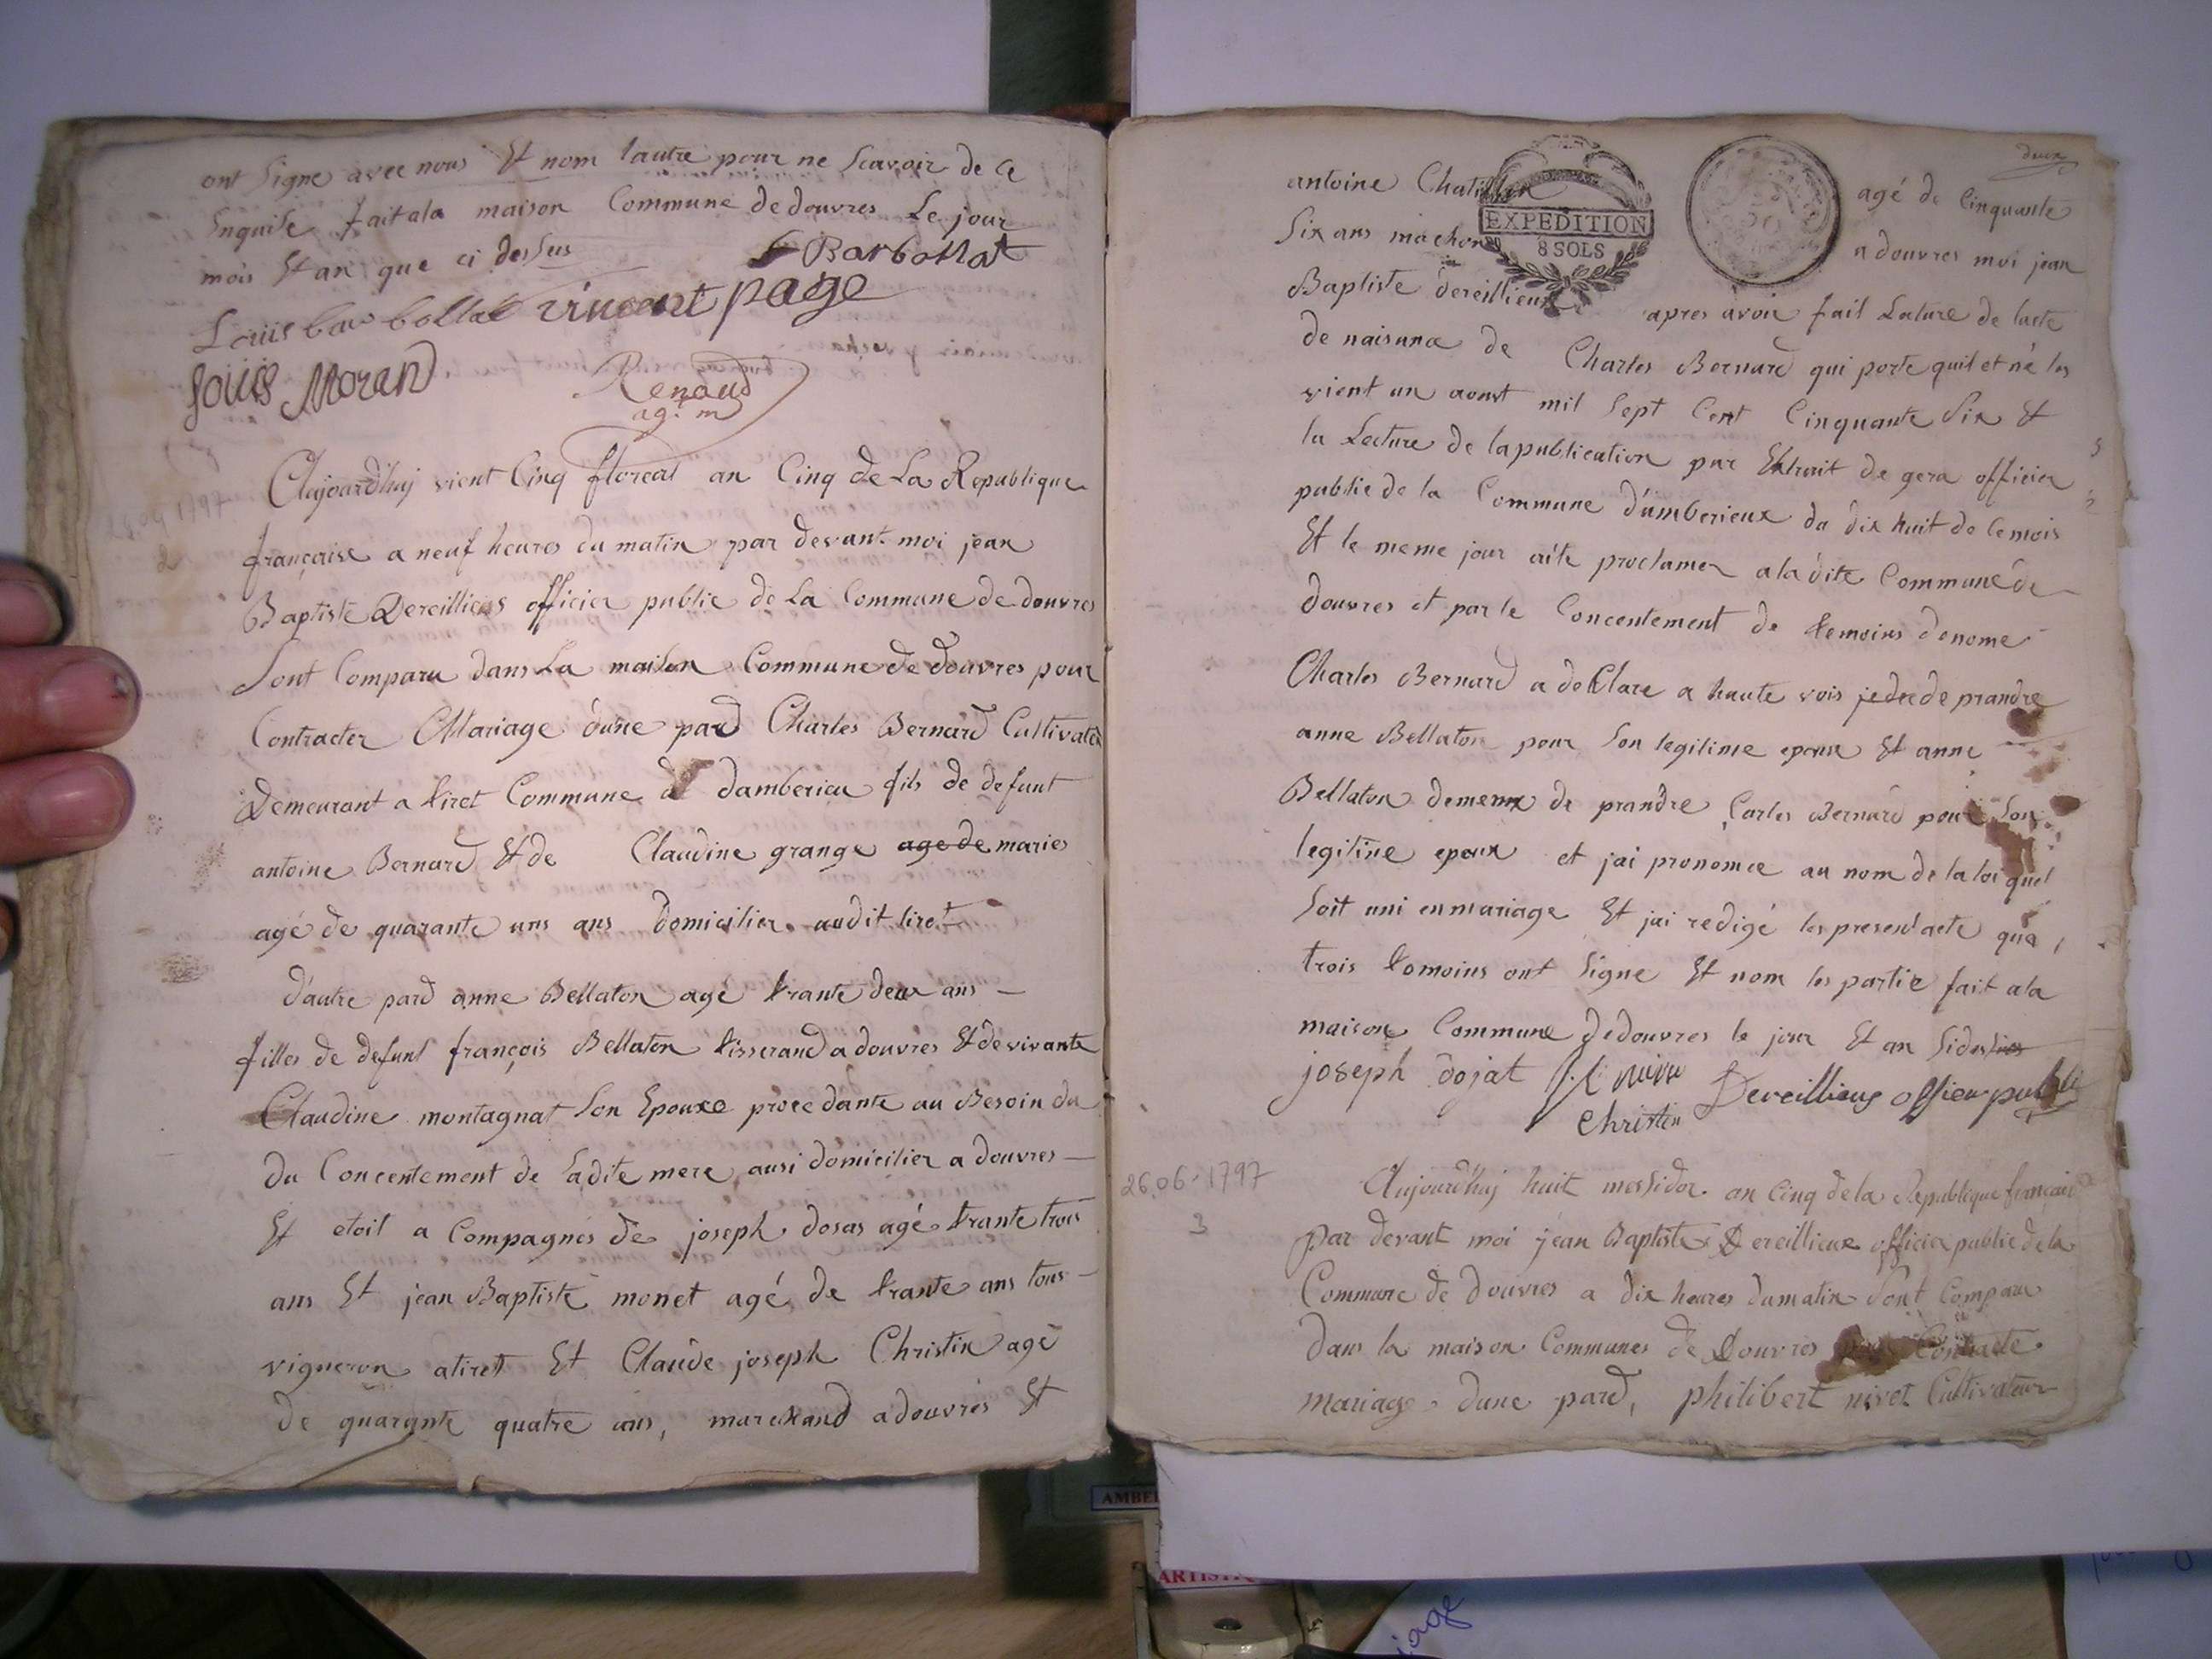 ont Signe avec nous Et nom lautre pour ne Scavoir de ce
Enquite fait ala maison Commune de douvres Le jour
mois Et an que ci desSus
Barbollat
Louis barbollat vincent page
louis Moran
Renaud
ag. m
Aujourdhuj vient Cinq floreal an Cinq de La Republique
24 04 1797
2
française a neuf heures du matin par devant moi jean
Baptiste Dereilliens officier public de La Commune de douvres
Sont Comparu dans La maison Commune de douvres pour
Contracter Mariage dune pard Charles Bernard Cultivateur
Demeurant a tiret Commune d damberieu fils de defunt
antoine Bernard Et de Claudine grange age de marie
agé de quarante uns ans domicilier audit tiret
d'autre pard anne Bellaton age trante deux ans
filles de defunt françois Bellaton tisserand a douvres Et de vivante
Claudine montagnat Son Epouxe procedante au Besoin du
du Concentement de Ladite mere ausi domicilier a douvres
Et etoit a Compagnés de joseph dosas agé trante trois
ans Et jean Baptiste monet agé de trante ans tous
vigneron a tiret Et Claude joseph Christin agé
de quarante quatre ans, marchand a douvres Et
deux
antoine Chatillon agé de Cinquante
EXPEDITION
8 SOLS
Six ans machon a douvres moi jean
Baptiste dereillieux apres avoir fait Lature de lacte
de naisance de Charles Bernard qui porte quil et né les
vient un aoust mil Sept Cent Cinquante Six Et
la Lecture de lapublication par Extrait de gera officier
public de la Commune d'amberieux du dix huit de ce mois
Et le meme jour aite proclamer a la dite Commune de
douvres et par le Concentement de temoins denome
Charles Bernard a deClare a haute vois de prandre
anne Bellaton pour Son legitime epoux Et anne
Bellaton dememe de prandre Carles Bernard pour Son
legitine epoux et jai prononcé au nom de la loi quel
Soit uni en mariage Et jai redigé les present acte que
trois temoins ont Signe Et nom les partie fait ala
maison Commune de douvres le jour Et an Sidesus
joseph dojat
Christin Dereilliens offisier public
26.06.1797
3
Aujourdhuj huit messidor an Cinq de la Republique française
Par devant moi jean Baptiste Dereillieux officier public de la
Commune de douvres a dix heures du matin Sont Comparu
dans la maison Communes de Douvres pour Contracte
mariage dune pard, philibert nivet Cultivateur
AMBE
ARTISTIQ
iage